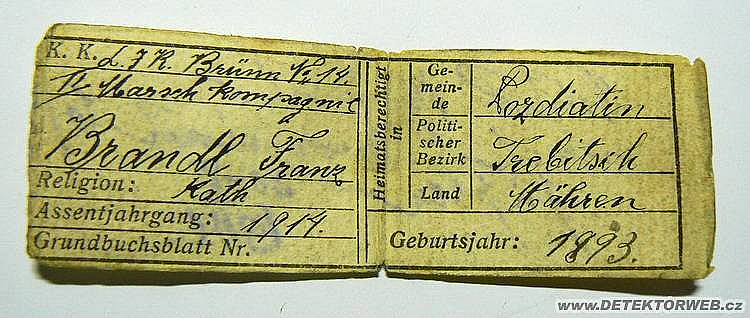 K. K. L. I. R. Brünn No 14.
Marsch kompagnie
Brandl Franz
Religion: Kath
Assentjahrgang: 1914.
Grundbuchsblatt Nr.
Heimatsberechtigt in
Gemeinde Pozdiatin
Politischer Bezirk Trebitsch
Land Mähren
Geburtsjahr: 1893.
www.DETEKTORWEB.cz